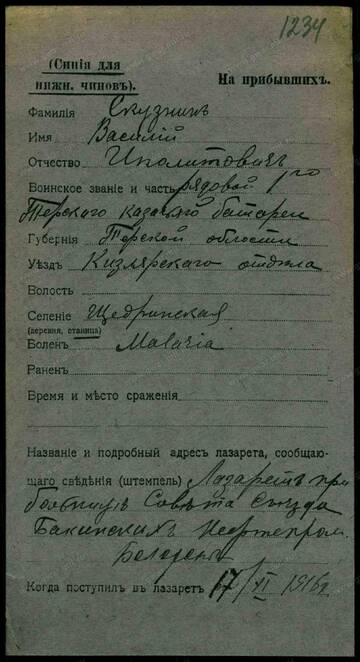 1234
(Синія для
нижн. чиновъ).
На прибывшихъ.
Фамилія Скузникъ
Имя Василій
Отчество Иполитовичъ
Воинское званіе и часть рядовой 1го
Терскаго казачьяго батареи
Губернія Терской области
Уѣздъ Кизлярскаго отдѣла
Волость
Селеніе Щедринская
(деревня, станица)
Боленъ Malaria
Раненъ
Время и мѣсто сраженія
Названіе и подробный адресъ лазарета, сообщаю-
щаго свѣдѣнія (штемпель) Лазаретъ при
больницѣ Совѣта Съѣзда
Бакинскихъ Нефтепром.
Когда поступилъ въ лазаретъ 17/XI 1916 г.